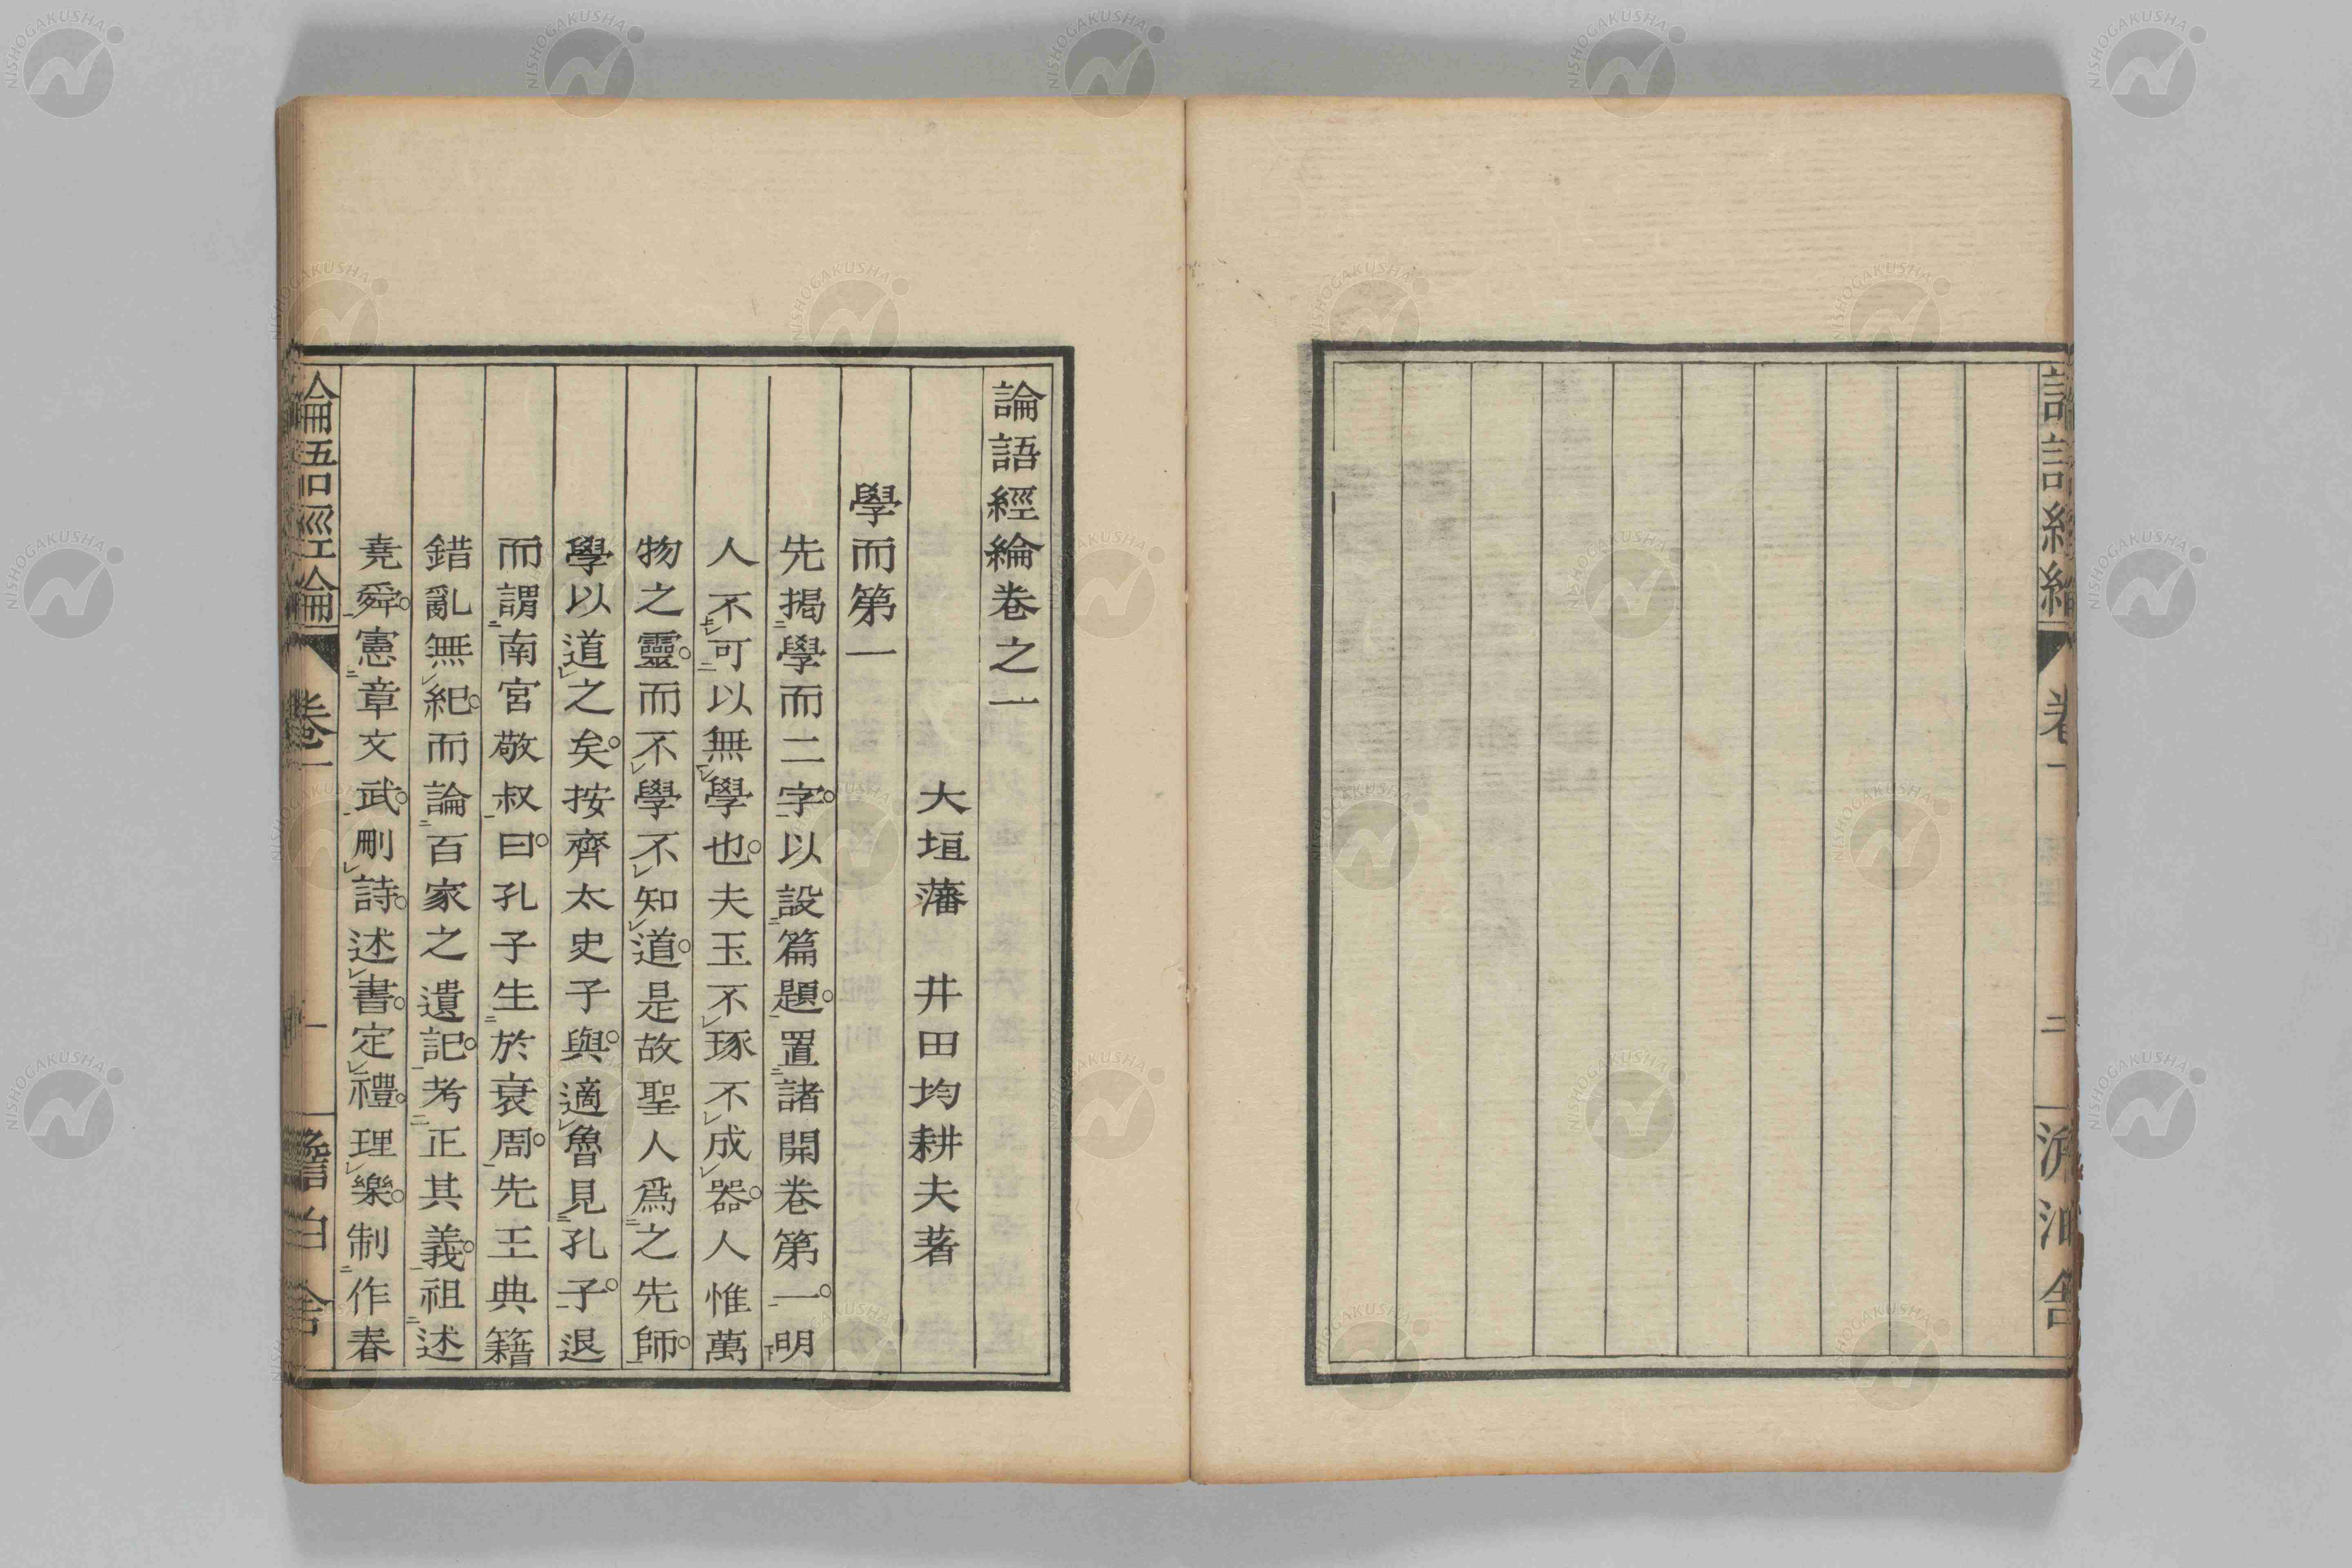 論語經綸卷之一
大垣藩 井田均耕夫著
學而第一
先揭學而二字。以設篇題。置諸開卷第一。明
人不可以無學也。夫玉不琢不成器。人惟萬
物之靈。而不學不知道。是故聖人爲之先師。
學以道之矣。按齊太史子與。適魯見孔子。退
而謂南宮敬叔曰。孔子生於衰周。先王典籍
錯亂無紀。而論百家之遺記。考正其義。祖述
堯舜。憲章文武。刪詩。述書。定禮。理樂。制作春
論語經綸 卷一 一
卷一 二
NISHOGAKUSHA